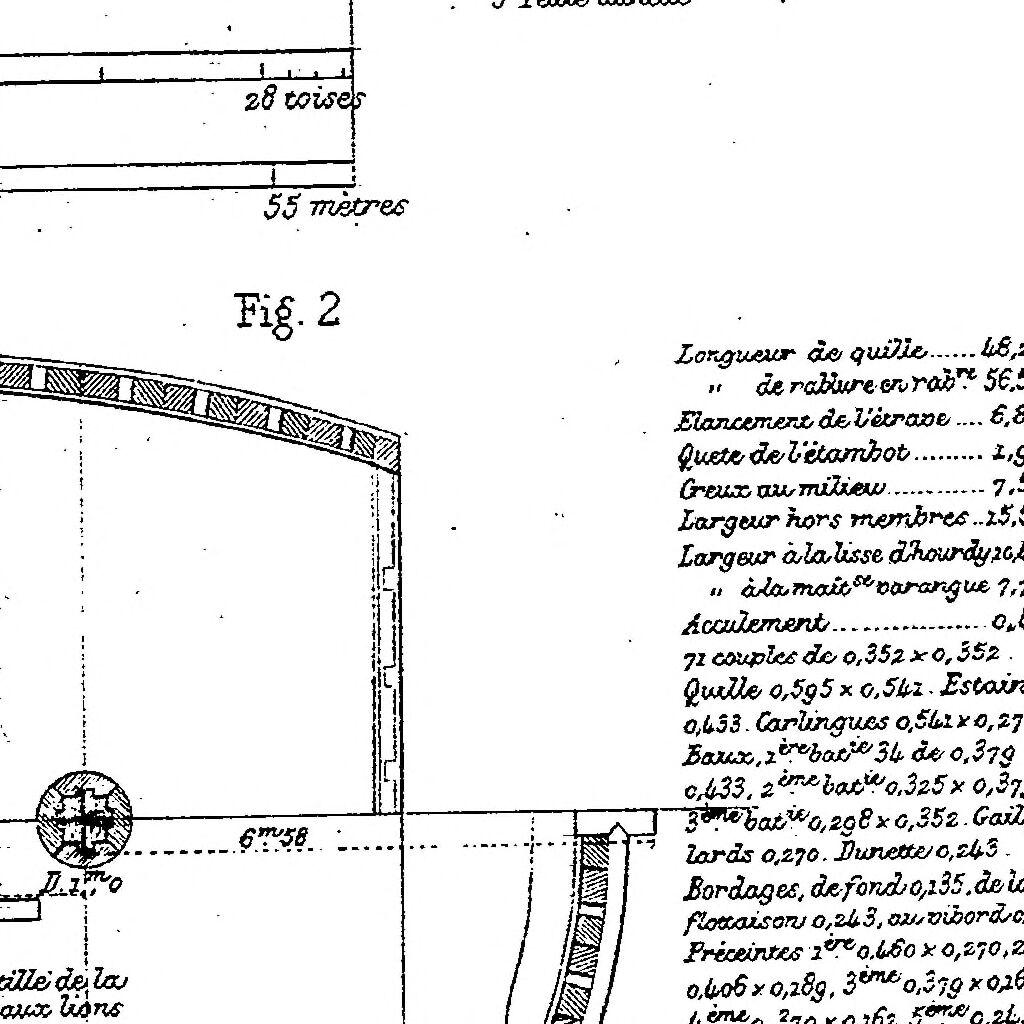 28 toises
55 mètres
Fig. 2
Longueur de quille ...... 48,
" de rablure en rab^re 56,5
Elancement de l'étrave .... 6,8
Quete de l'étambot ......... 1,9
Creux au milieu ............ 7,
Largeur hors membres .. 15,
Largeur à la lisse d'hourdy
" à la mait^se varangue 7,
Acculement ................ 0,
71 couples de 0,352 x 0,352.
Quille 0,595 x 0,541. Estain
0,433. Carlingues 0,541 x 0,27
Baux, 1^ère bat^ie 34 de 0,379
0,433, 2^ème bat^ie 0,325 x 0,37
3^ème bat^ie 0,298 x 0,352. Gail
6^m 58
lards 0,270. Dunette 0,243.
D. 1^m,0
Bordages, de fond 0,135, de la
flottaison 0,243, au vibord
Préceintes 1^ère 0,460 x 0,270, 2
0,406 x 0,189, 3^ème 0,379 x 0,16
ille de la
aux lions